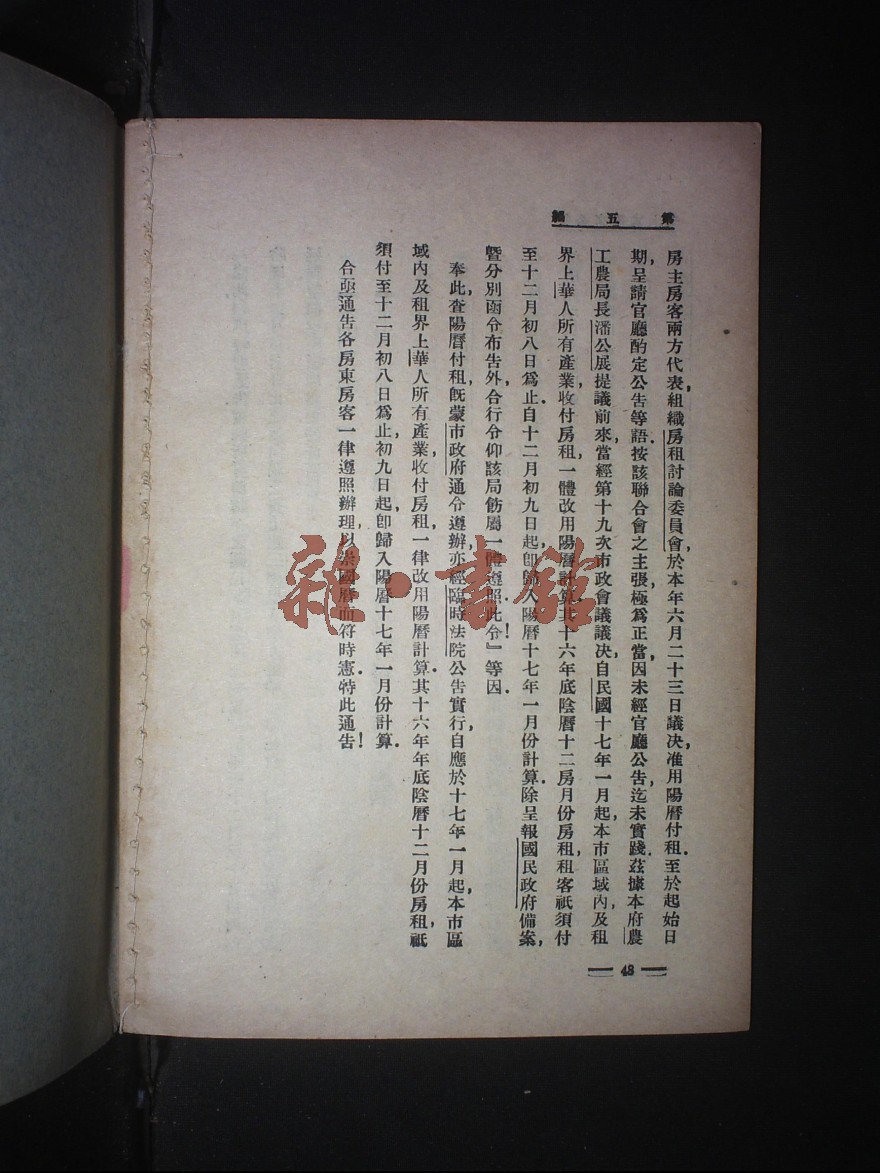 第五編
房主房客兩方代表，組織房租討論委員會，於本年六月二十三日議決，准用陽曆付租．至於起始日
期，呈請官廳酌定公告等語．按該聯合會之主張，極爲正當，因未經官廳公告，迄未實踐．茲據本府農
工農局長潘公展提議前來，當經第十九次市政會議議决，自民國十七年一月起，本市區域內，及租
界上華人所有產業，收付房租，一體改用陽曆計算．其十六年底陰曆十二房月份房租，租客祇須付
至十二月初八日爲止．自十二月初九日起，卽歸入陽曆十七年一月份計算．除呈報國民政府備案，
曁分別函令布告外，合行令仰該局飭屬一體遵照．此令！』等因．
奉此，查陽曆付租，旣蒙市政府通令遵辦，亦經臨時法院公告實行，自應於十七年一月起，本市區
域內及租界上華人所有產業，收付房租，一律改用陽曆計算．其十六年年底陰曆十二月份房租，祇
須付至十二月初八日爲止，初九日起，卽歸入陽曆十七年一月份計算．
合亟通告各房東房客一律遵照辦理，以崇國曆而符時憲．特此通告！
48
雜·書館